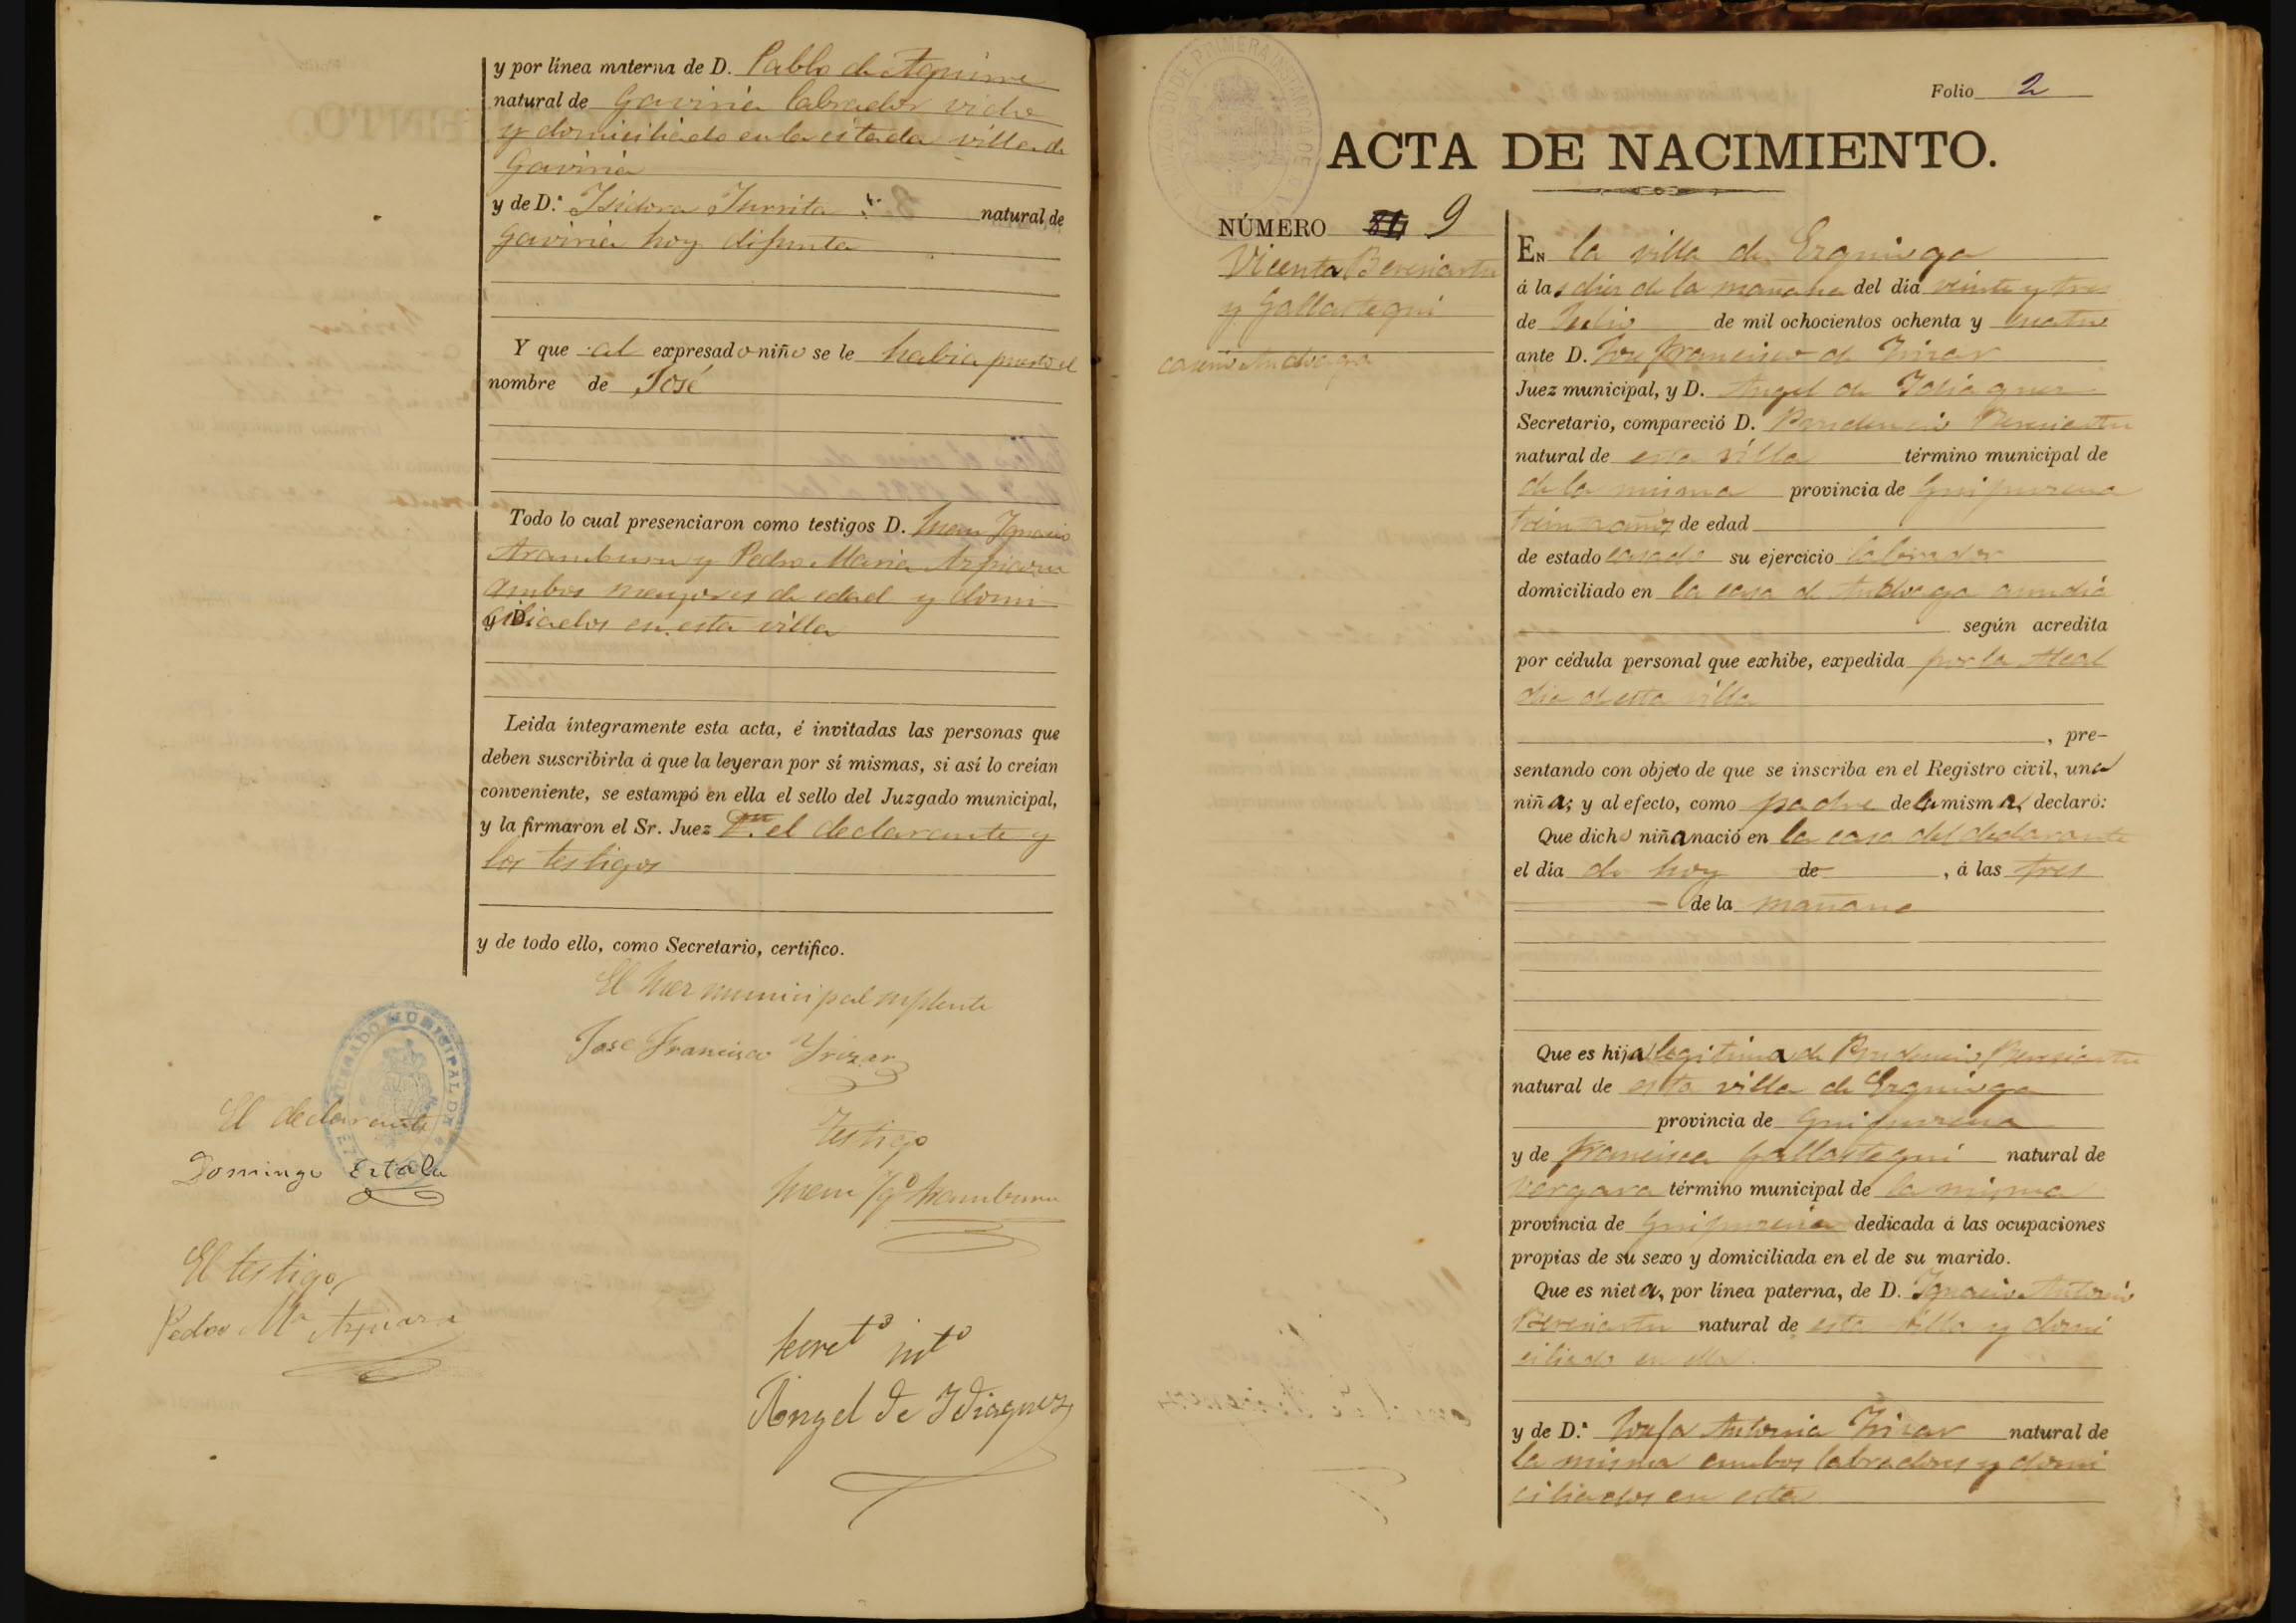 y por línea materna de D. Pablo de Aguirre
natural de Gaviria labrador viudo
y domiciliado en la citada villa de
Gaviria
y de D.ª Isidora Iturrita natural de
Gaviria hoy difunta
Y que al expresado niño se le habia puesto el
nombre de José
Todo lo cual presenciaron como testigos D. Juan Ignacio
Aramburu y Pedro Maria Azpiazu
ambos mayores de edad y domi
ciliados en esta villa
Leida íntegramente esta acta, é invitadas las personas que
deben suscribirla á que la leyeran por sí mismas, si así lo creían
conveniente, se estampó en ella el sello del Juzgado municipal,
y la firmaron el Sr. Juez el declarante y
los testigos
y de todo ello, como Secretario, certifico.
El Juez municipal suplente
Jose Francisco Yrizar
El declarante
Domingo Eztala
Testigo
Juan Ygº Aramburu
El testigo
Pedro Mª Azpiazu
Secretº intº
Angel de Idiaquez
JUZGADO MUNICIPAL DE
JUZGADO DE PRIMERA INSTANCIA DE
Folio 2
ACTA DE NACIMIENTO.
NÚMERO 9
Vicenta Bereciartu
y Gallastegui
EN la villa de Ezquioga
á las diez de la mañana del día veinte y tres
de Julio de mil ochocientos ochenta y cuatro
ante D. José Francisco de Irizar
Juez municipal, y D. Angel de Idiaquez
Secretario, compareció D. Prudencio Bereciartu
natural de esta villa término municipal de
de la misma provincia de Guipuzcoa
treinta años de edad
de estado casado su ejercicio labrador
domiciliado en la casa de
según acredita
por cédula personal que exhibe, expedida por la Alcal
dia de esta villa
, pre-
sentando con objeto de que se inscriba en el Registro civil, una
niña; y al efecto, como padre de la misma, declaró:
Que dicho niña nació en la casa del declarante
el día de hoy de , á las tres
de la mañana
Que es hija legitima de Prudencio Bereciartu
natural de esta villa de Ezquioga
provincia de Guipuzcoa
y de Francisca Gallastegui natural de
Vergara término municipal de la misma
provincia de Guipuzcoa dedicada á las ocupaciones
propias de su sexo y domiciliada en el de su marido.
Que es nieta, por línea paterna, de D. Ignacio Antonio
Bereciartu natural de esta villa y domi
ciliado en ella.
y de D.ª Josefa Antonia Irizar natural de
la misma ambos labradores y domi
ciliados en esta